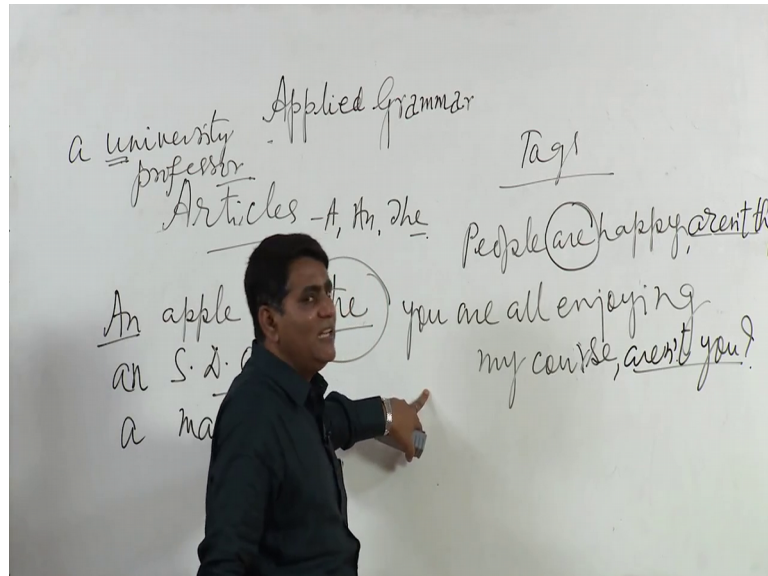 Applied Grammar
a university
professor
Articles - A, An, The
An apple the
an S.D.
a ma
Tags
People are happy, aren't th
you are all enjoying
my course, aren't you?